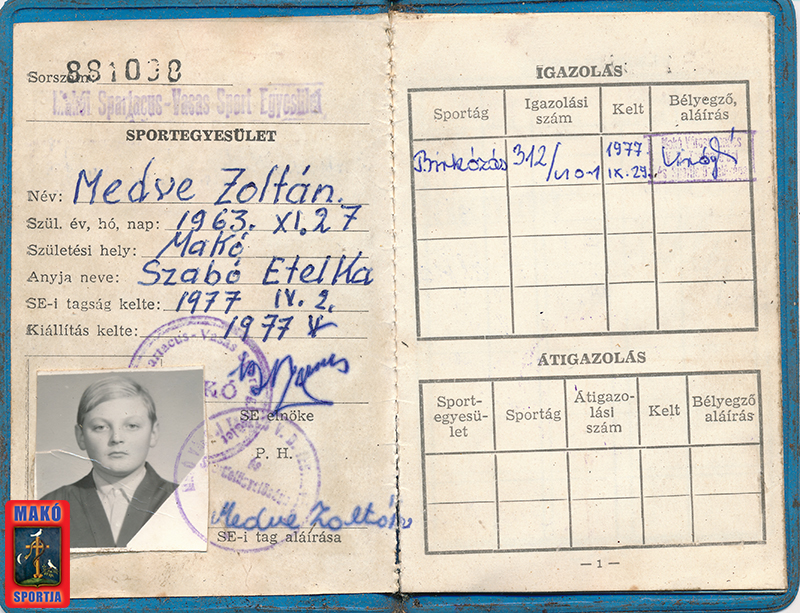 Sorszám: 881098
Makói Spartacus-Vasas Sport Egyesület
SPORTEGYESÜLET
Név: Medve Zoltán.
Szül. év, hó, nap: 1963. XI. 27
Születési hely: Makó
Anyja neve: Szabó Etelka
SE-i tagság kelte: 1977 IV. 2.
Kiállítás kelte: 1977 V
SE elnöke
P. H.
Medve Zoltán
SE-i tag aláírása
MAKÓ
SPORTJA
IGAZOLÁS
Sportág
Igazolási szám
Kelt
Bélyegző, aláírás
Birkózás
312/
1977
IX. 29.
ÁTIGAZOLÁS
Sport-
egyesü-
let
Sportág
Átigazo-
lási
szám
Kelt
Bélyegző
aláírás
— 1 —